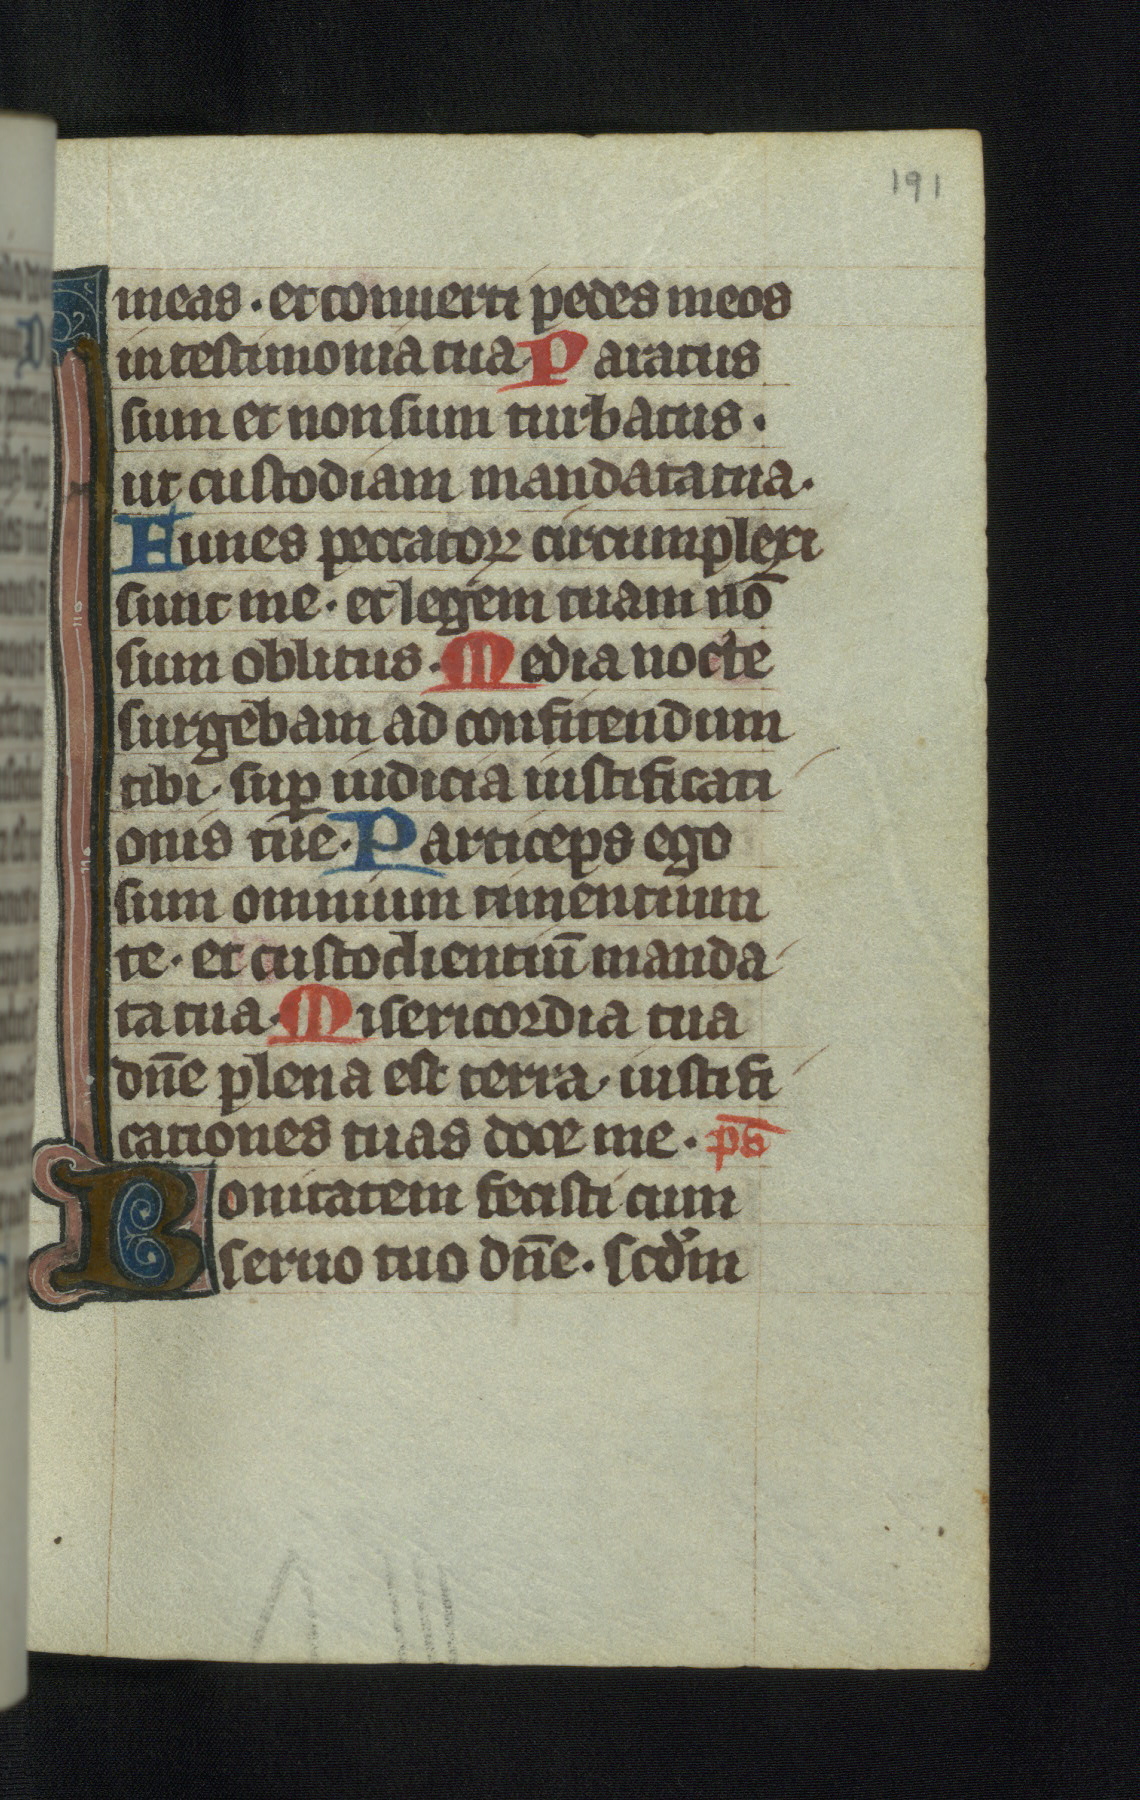 191
meas · et conuerti pedes meos
in testimonia tua · Paratus
sum et non sum turbatus ·
ut custodiam mandata tua ·
Funes peccatoꝝ circumplexi
sunt me · et legem tuam nō
sum oblitus · Media nocte
surgebam ad confitendum
tibi · suꝑ iudicia iustificati
onis tue · Particeps ego
sum omnium timentium
te · et custodientiū manda
ta tua · Misericordia tua
dn̄e plena est terra · iustifi
cationes tuas doce me · ps̄
Bonitatem fecisti cum
seruo tuo dn̄e · scd̓m